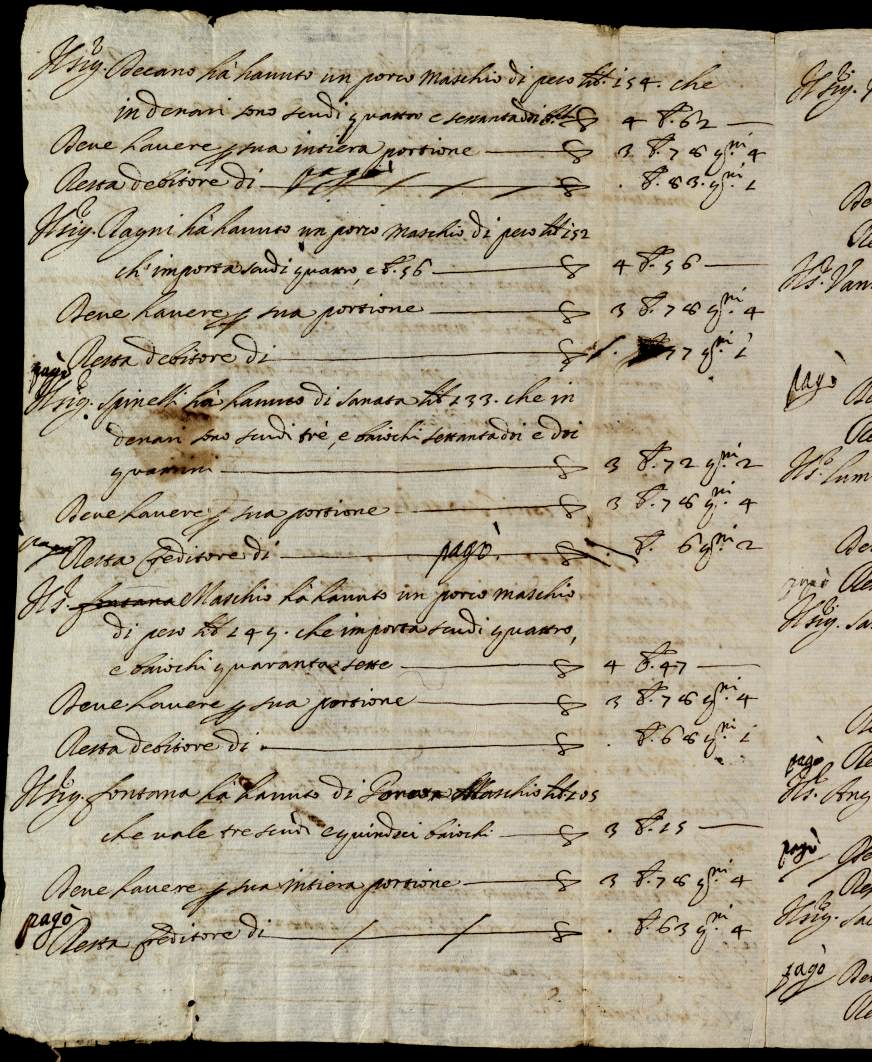 Il Sig.r Decano hà hauuto un porco Maschio di peso lib. 154. che
in denari sono scudi quattro e sessantadoi b. ∇ 4 b. 62 —
Deue hauere p sua intiera portione — ∇ 3 b. 78 q.ni 4
Resta debitore di — pagò — ∇ . b. 83. q.ni 1
Il Sig.r Ragni hà hauuto un porco Maschio di peso lib. 152
ch'importa scudi quattro, e b. 56 — ∇ 4 b. 56 —
Deue hauere p sua portione — ∇ 3 b. 78 q.ni 4
pagò Resta debitore di — ∇ . 77 q.ni 1
Il Sig.r Spinelli hà hauuto di Sanata lib. 133. che in
denari sono scudi trè, e baiochi settantadoi e doi
quattrini — ∇ 3 b. 72 q.ni 2
Deue hauere p sua portione — ∇ 3 b. 78 q.ni 4
pagò Resta Creditore di — pagò. — ∇ . b. 6 q.ni 2
Il S.r fontana Maschio hà hauuto un porco maschio
di peso lib. 149. che importa scudi quattro,
e baiochi quaranta sette — ∇ 4 b. 47 —
Deue hauere p sua portione — ∇ 3 b. 78 q.ni 4
Resta debitore di — ∇ . b. 68 q.ni 1
Il Sig.r fontana hà hauuto di Maschio lib. 105
che vale tre scudi e quindici baiochi — ∇ 3 b. 15 —
Deue hauere p sua intiera portione — ∇ 3 b. 78 q.ni 4
pagò Resta Creditore di — ∇ . b. 63 q.ni 4
Il Sig.r
Il S.r Van
pagò
Il S.r Lum
pagò
Il Sig.r
pagò
Il S.r Ang
pagò
Il Sig.r
pagò